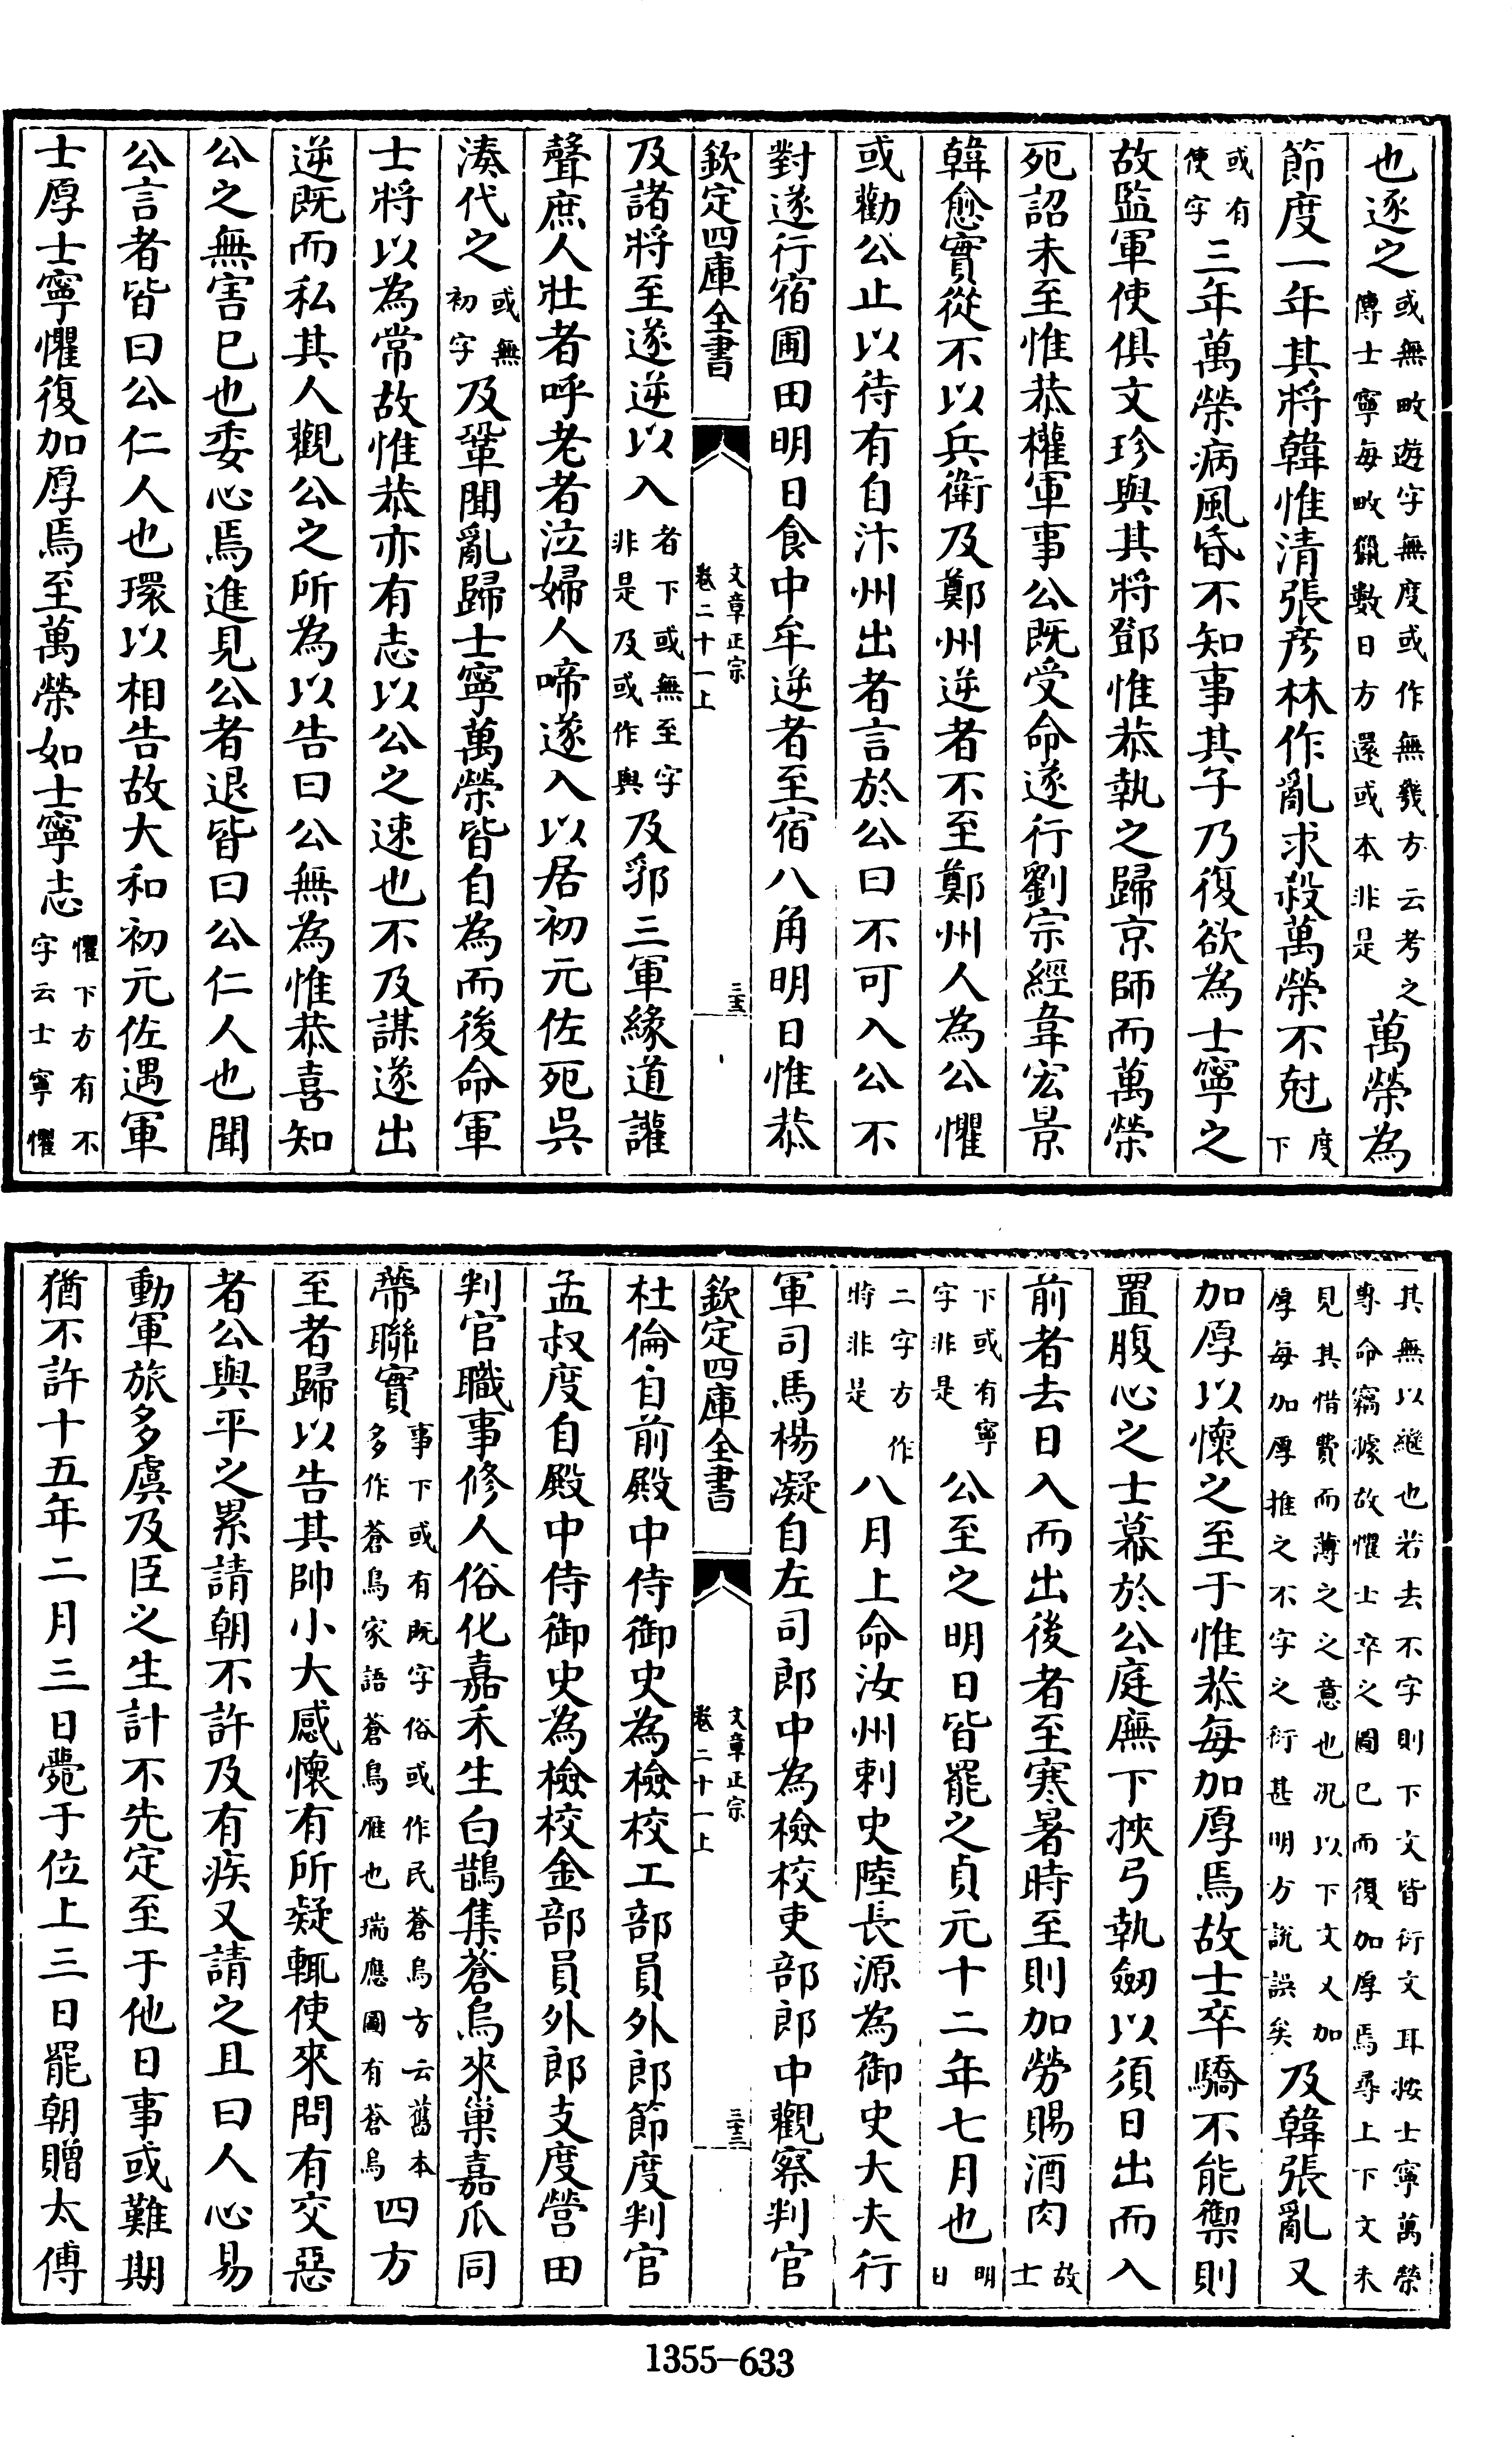 也逐之或無畋遊字無度或作無幾方云考之傳士寧每畋獵數日方還或本非是萬榮為
節度一年其將韓惟清張彥林作亂求殺萬榮不尅度下
或有使字三年萬榮病風昏不知事其子乃復欲為士寧之
故監軍使俱文珍與其將鄧惟恭執之歸京師而萬榮
死詔未至惟恭權軍事公既受命遂行劉宗經韋宏景
韓愈實從不以兵衛及鄭州逆者不至鄭州人為公懼
或勸公止以待有自汴州出者言於公曰不可入公不
對遂行宿圃田明日食中牟逆者至宿八角明日惟恭
欽定四庫全書 文章正宗 卷二十一上 三十三
及諸將至遂逆以入者下或無至字非是及或作與及郛三軍緣道讙
聲庶人壯者呼老者泣婦人啼遂入以居初元佐死吳
湊代之或無初字及鞏聞亂歸士寧萬榮皆自為而後命軍
士將以為常故惟恭亦有志以公之速也不及謀遂出
逆既而私其人觀公之所為以告曰公無為惟恭喜知
公之無害已也委心焉進見公者退皆曰公仁人也聞
公言者皆曰公仁人也環以相告故大和初元佐遇軍
士厚士寧懼復加厚焉至萬榮如士寧志懼下方有不字云士寧懼
其無以繼也若去不字則下文皆衍文耳按士寧萬榮專命竊據故懼士卒之圖已而復加厚焉尋上下文未
見其惜費而薄之之意也况以下文又加厚每加厚推之不字之衍甚明方說誤矣及韓張亂又
加厚以懷之至于惟恭每加厚焉故士卒驕不能禦則
置腹心之士幕於公庭廡下挾弓執劒以須日出而入
前者去日入而出後者至寒暑時至則加勞賜酒肉故士
下或有寧字非是公至之明日皆罷之貞元十二年七月也明日
二字方作時非是八月上命汝州刺史陸長源為御史大夫行
軍司馬楊凝自左司郎中為檢校吏部郎中觀察判官
欽定四庫全書 文章正宗 卷二十一上 三十三
杜倫自前殿中侍御史為檢校工部員外郎節度判官
孟叔度自殿中侍御史為檢校金部員外郎支度營田
判官職事修人俗化嘉禾生白鵲集蒼烏來巢嘉瓜同
蔕聯實事下或有既字俗或作民蒼烏方云舊本多作蒼鳥家語蒼鳥雁也瑞應圖有蒼烏四方
至者歸以告其帥小大感懷有所疑輒使來問有交惡
者公與平之累請朝不許及有疾又請之且曰人心易
動軍旅多虞及臣之生計不先定至于他日事或難期
猶不許十五年二月三日薨于位上三日罷朝贈太傅
1355-633